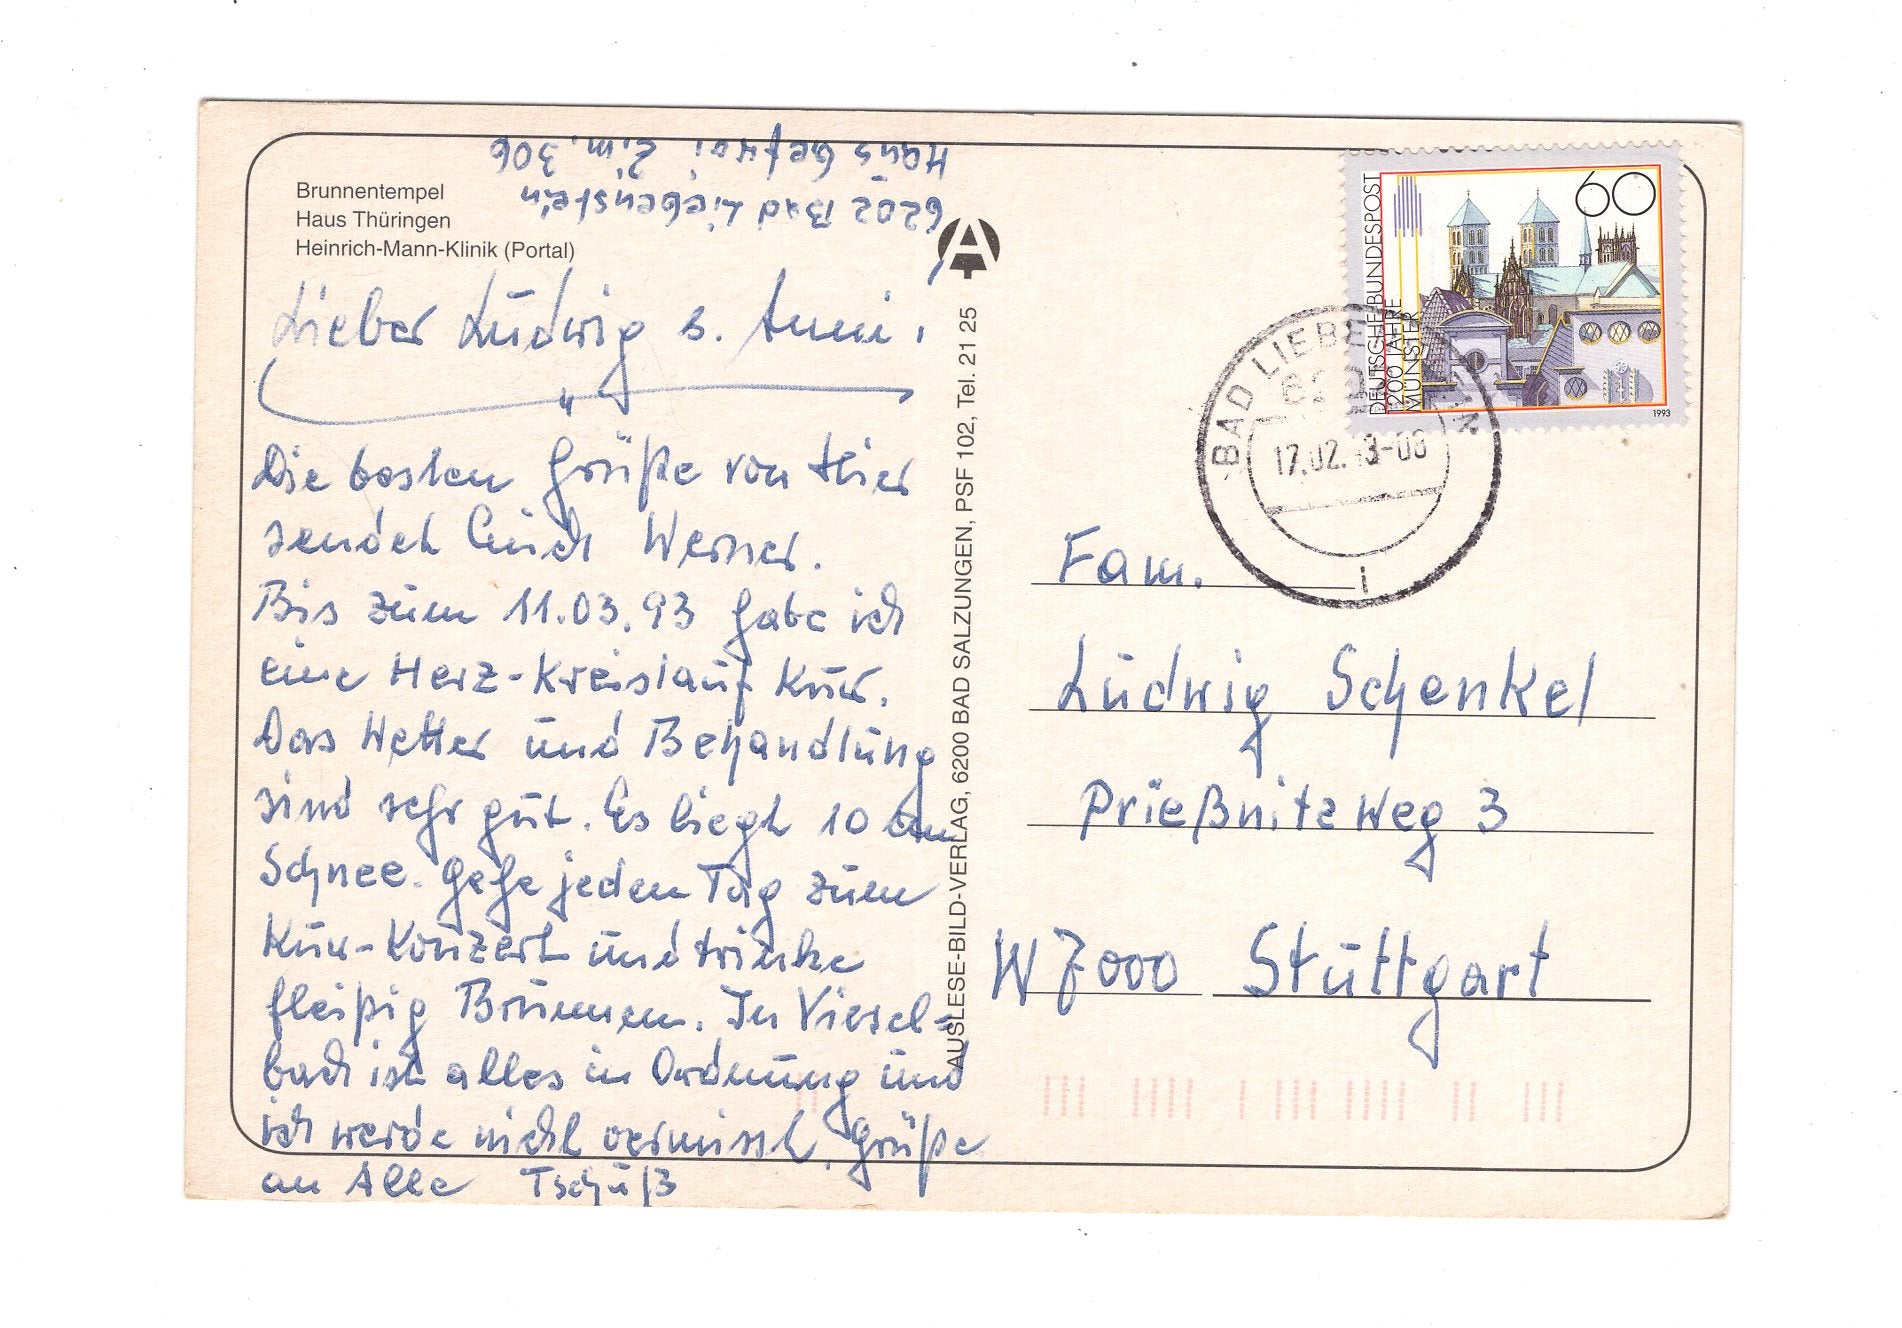 Brunnentempel
Haus Thüringen
Heinrich-Mann-Klinik (Portal)
6202 Bad Liebenstein
Haus Zim. 306
Lieber Ludwig u. Anni,
Die besten Grüße von Hier
sendet Euch Werner.
Bis zum 11.03.93 habe ich
eine Herz-Kreislauf Kur.
Das Wetter und Behandlung
sind sehr gut. Es liegt 10 cm
Schnee. Gehe jeden Tag zum
Kur-Konzert und trinke
fleißig Brunnen. In Viesel=
bach ist alles in Ordnung und
ich werde nicht vermisst. Grüße
an Alle Tschüß
AUSLESE-BILD-VERLAG, 6200 BAD SALZUNGEN, PSF 102, Tel. 21 25
60
DEUTSCHE BUNDESPOST
1200 JAHRE
MÜNSTER
1993
BAD LIEBENSTEIN
17.02.
i
Fam.
Ludwig Schenkel
Prießnitzweg 3
W 7000 Stuttgart